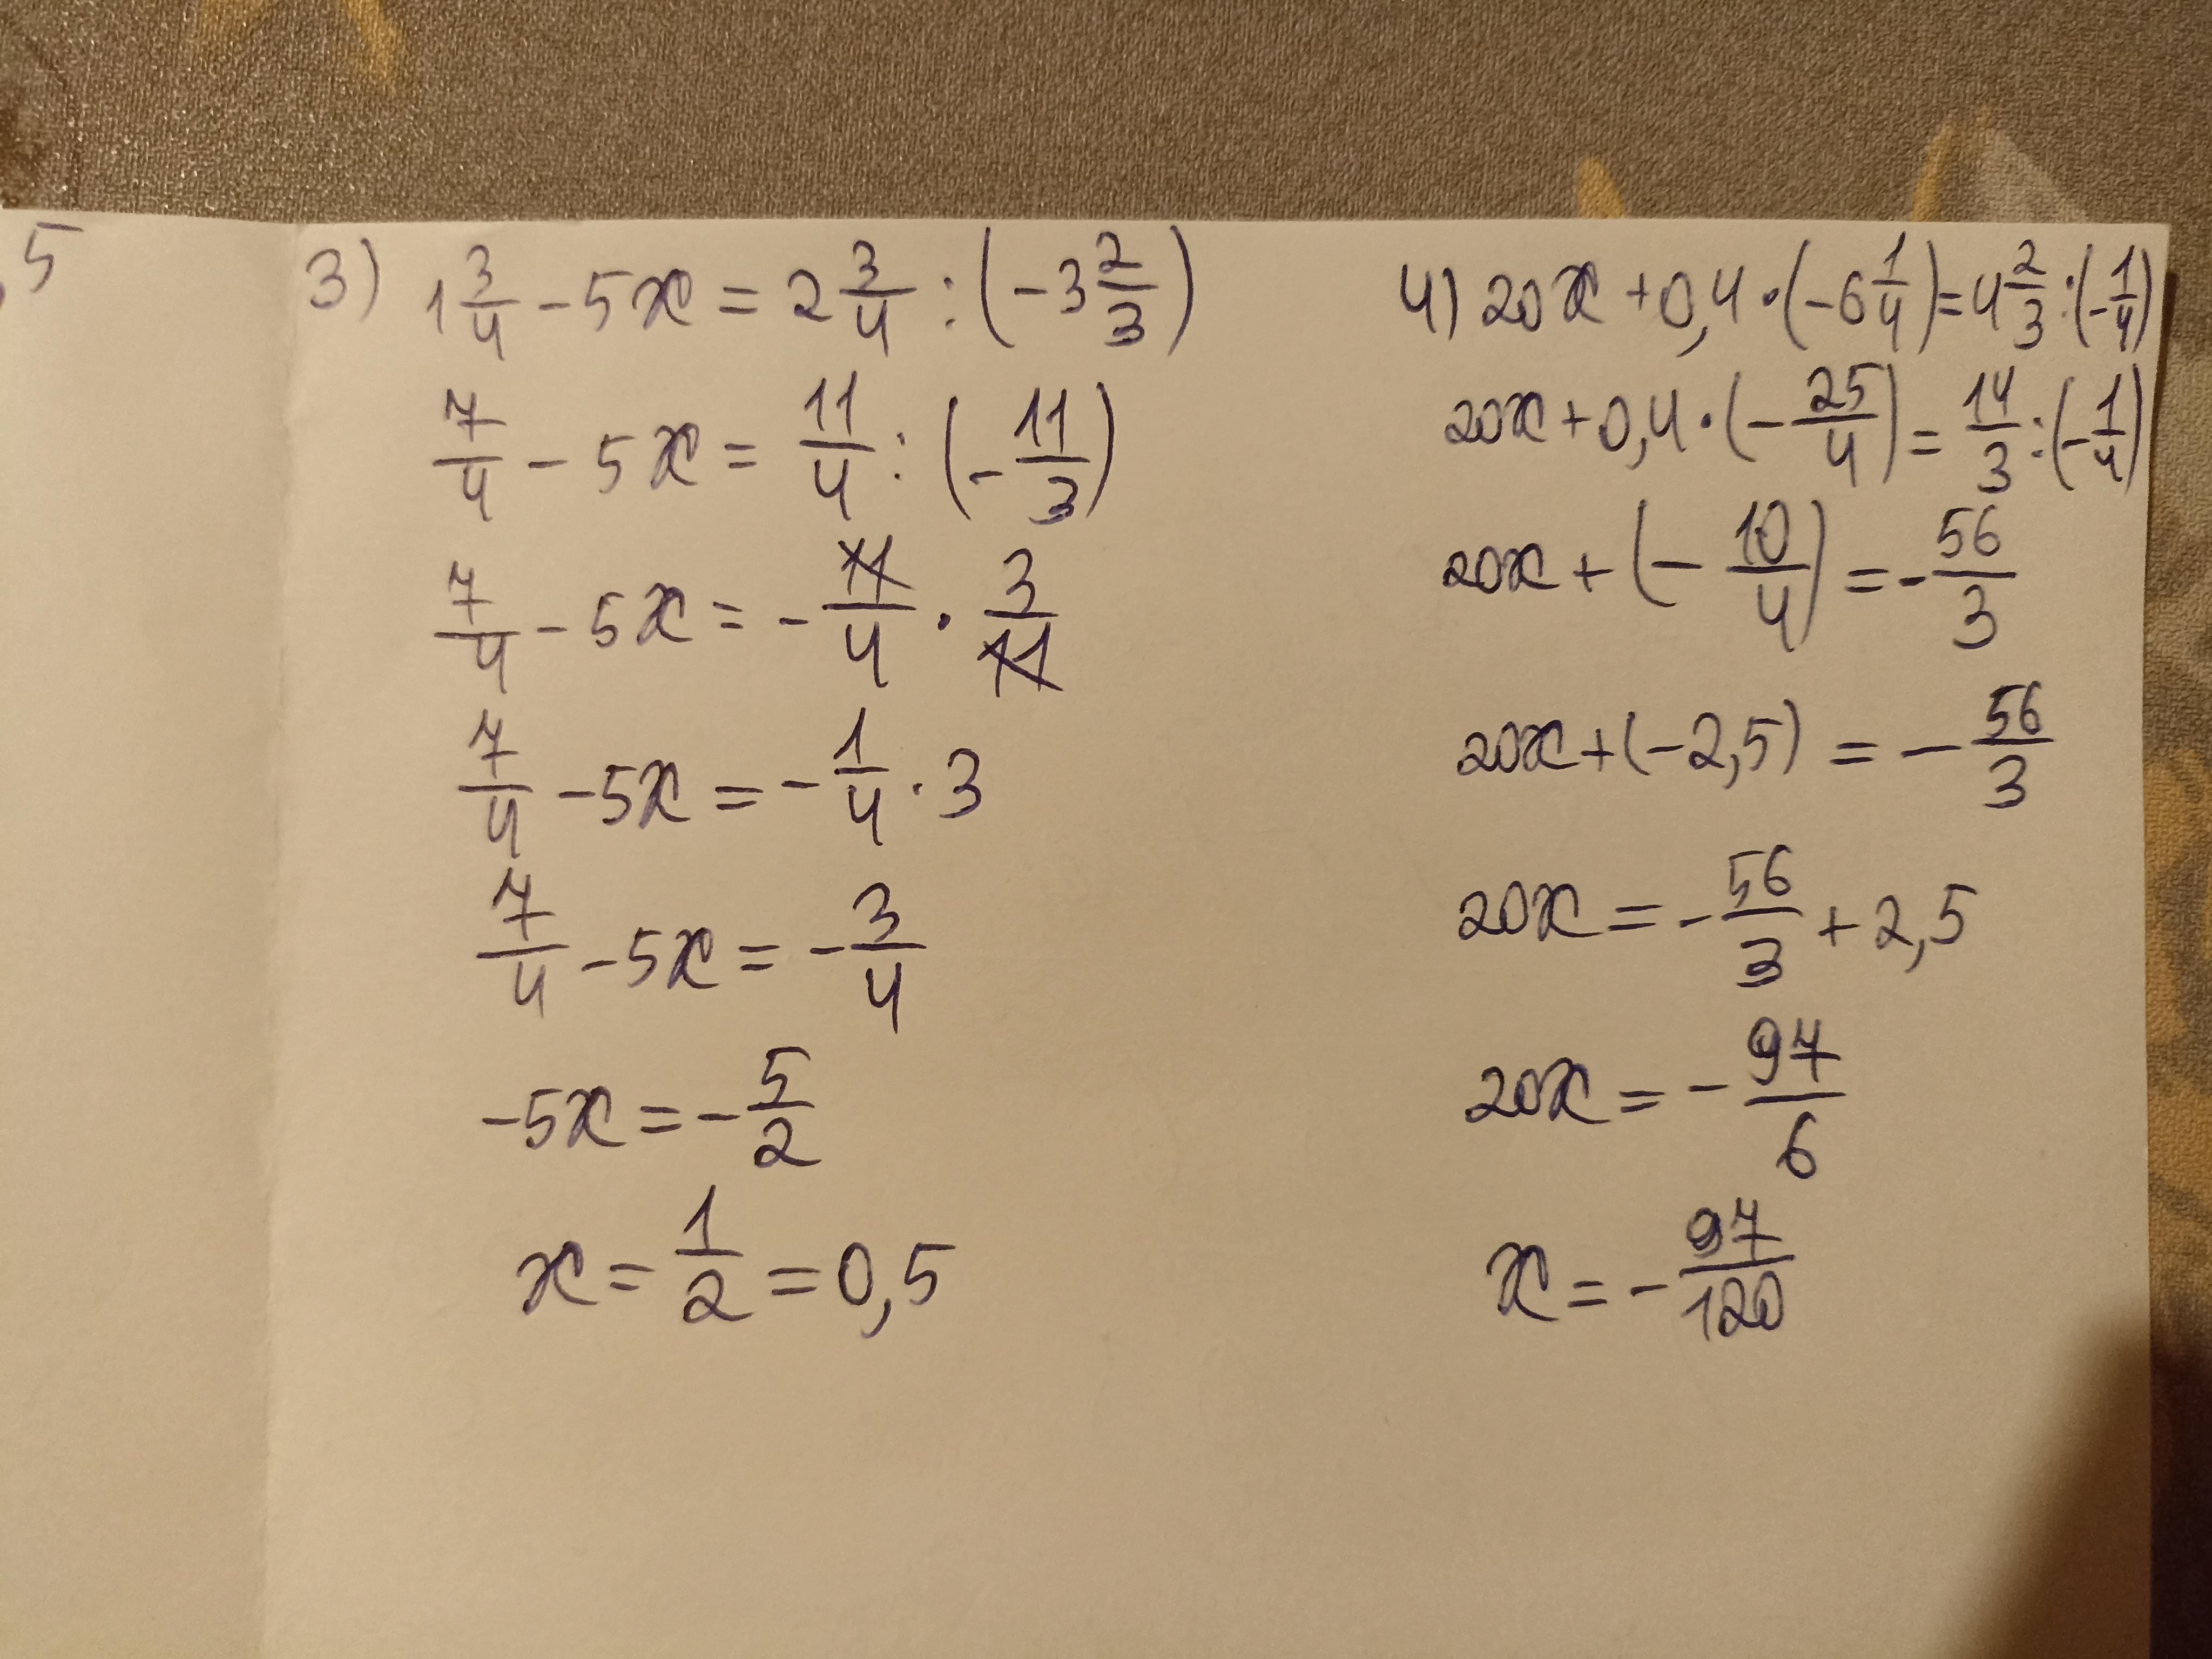 5
3) 1 3/4 - 5x = 2 3/4 : (-3 2/3)
7/4 - 5x = 11/4 : (- 11/3)
7/4 - 5x = - 11/4 · 3/11
7/4 - 5x = - 1/4 · 3
7/4 - 5x = - 3/4
-5x = - 5/2
x = 1/2 = 0,5
4) 20x + 0,4 · (-6 1/4) = 4 2/3 : (- 1/4)
20x + 0,4 · (- 25/4) = 14/3 : (- 1/4)
20x + (- 10/4) = - 56/3
20x + (-2,5) = - 56/3
20x = - 56/3 + 2,5
20x = - 97/6
x = - 97/120